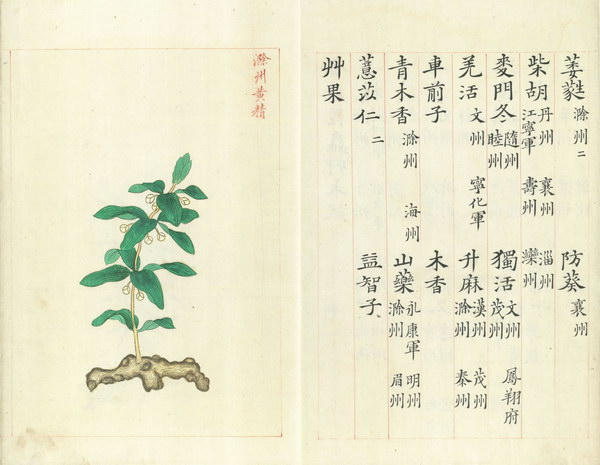 萎蕤 滁州二 防葵 襄州
柴胡 丹州 襄州 淄州 江寧軍 壽州 㶟州
麥門冬 隨州 睦州 獨活 文州 鳳翔府 茂州
羌活 文州 寧化軍 升麻 漢州 茂州 滁州 秦州
車前子 木香
青木香 滁州 海州 山藥 永康軍 明州 滁州 眉州
薏苡仁二 益智子
艸果
滁州黄精